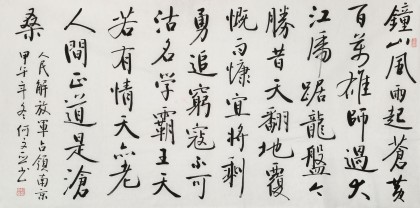 鐘山風雨起蒼黃
百萬雄師過大
江虎踞龍盤今
勝昔天翻地覆
慨而慷宜將剩
勇追窮寇不可
沽名學霸王天
若有情天亦老
人間正道是滄
桑
人民解放軍占領南京
甲午年冬何文书